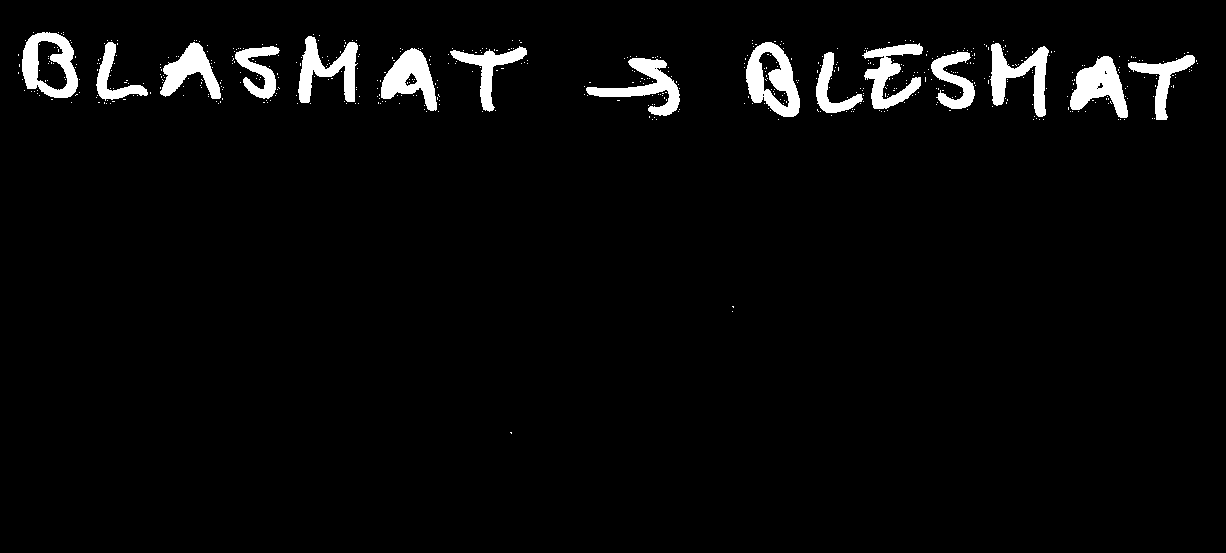 BLASMAT → BLESMAT